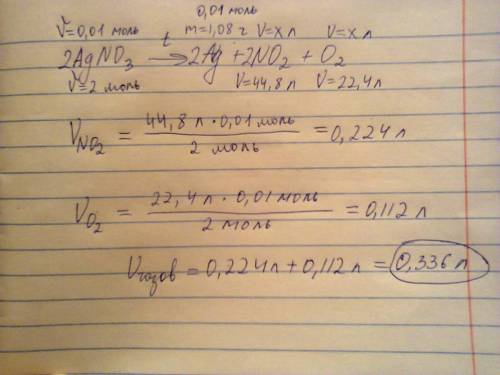 0,01 моль
ν=0,01 моль t m=1,08 г V=x л V=x л
2AgNO₃ → 2Ag + 2NO₂ + O₂
ν=2 моль V=44,8 л V=22,4 л
V_NO₂ = 44,8 л · 0,01 моль / 2 моль = 0,224 л
V_O₂ = 22,4 л · 0,01 моль / 2 моль = 0,112 л
Vгазов = 0,224 л + 0,112 л = 0,336 л